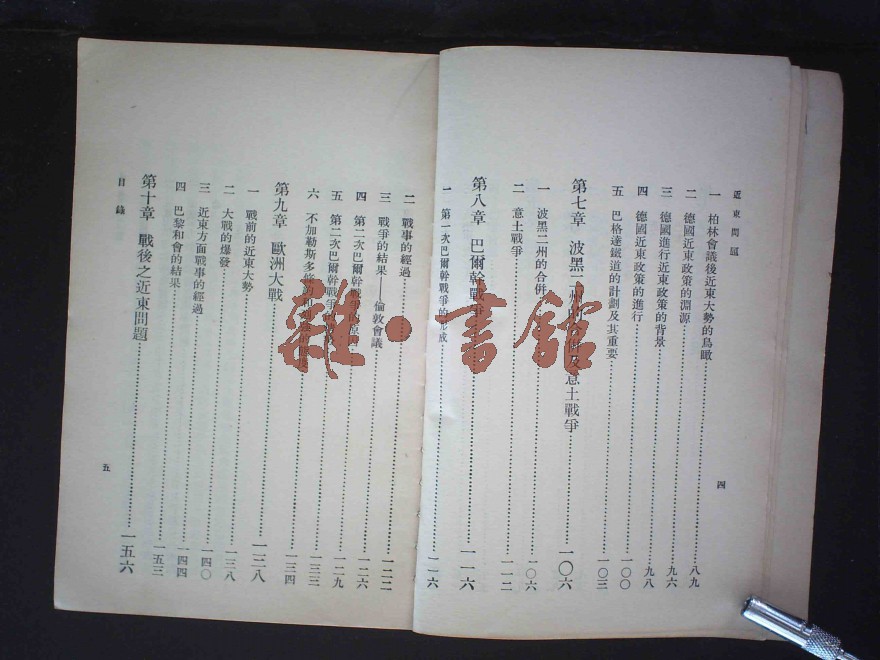 近東問題
一 柏林會議後近東大勢的鳥瞰……八九
二 德國近東政策的淵源……九六
三 德國進行近東政策的背景……九八
四 德國近東政策的進行……一〇〇
五 巴格達鐵道的計劃及其重要……一〇三
第七章 波黑二州的合併及意土戰爭……一〇六
一 波黑二州的合併……一〇六
二 意土戰爭……一一二
第八章 巴爾幹戰爭……一一六
一 第一次巴爾幹戰爭的形成……一一六
四
二 戰事的經過
三 戰爭的結果——倫敦會議……一二二
四 第二次巴爾幹戰爭的原因……一二六
五 第二次巴爾幹戰爭……一二九
六 不加勒斯多……一三三
第九章 歐洲大戰……一三四
一 戰前的近東大勢……一三八
二 大戰的爆發……一三八
三 近東方面戰事的經過……一四〇
四 巴黎和會的結果……一四四
第十章 戰後之近東問題……一五六
一五三
目錄
五
雜·書館